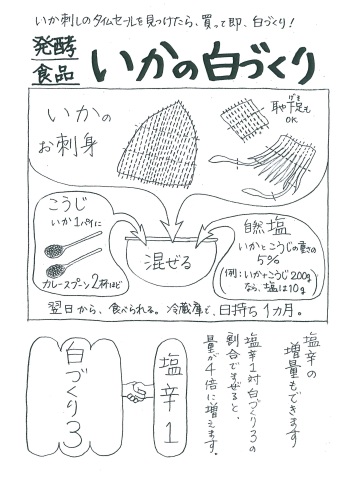 いか刺しのタイムセールを見つけたら、買って即、白づくり!
発酵
食品
いかの白づくり
いかの
お刺身
耳や下足も
OK
げそ
こうじ
いか1パイに
カレースプーン2杯ほど
混ぜる
自然塩
いかとこうじの重さの
5%
(例:いか+こうじ200g
なら、塩は10g)
翌日から、食べられる。冷蔵庫で、日持ち1カ月。
塩辛の
増量もできます
塩辛1対白づくり3の
割合でまぜると、
量が4倍に増えます。
塩辛1
白づくり3